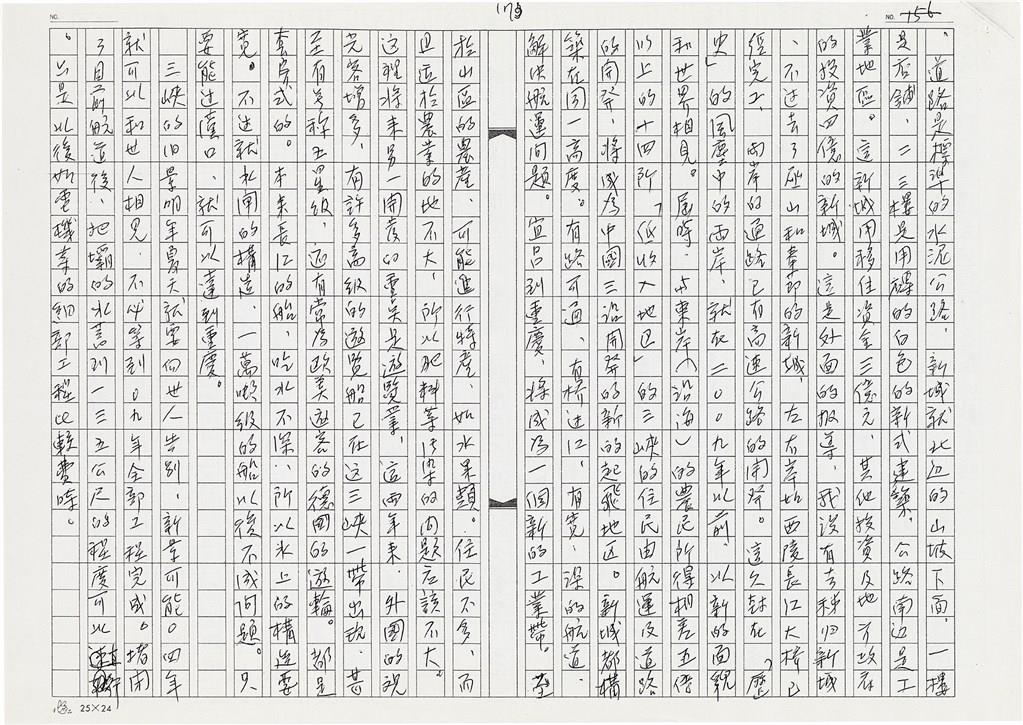 NO.
173
NO. 156
。道路是標準的水泥公路,新城就北边的山坡下面,一樓
是店舖,二、三樓是用磚的白色的新式建築。公路南边是工
業地區。這新城用移住资金三億元,其他投資及地方政府
的投资四億的新城。這是外面的报导,我没有去秭归新城
、不过去了巫山和奉節的新城,左右岸如西陵長江大橋已
经完工,两岸的通路已有高速公路的開發。這久封在「歷
史」的風塵中的両岸,就在二〇〇九年以前,以新的面貌
和世界相見。屆時,占東岸(沿海)的農民所得相差五倍
以上的十四所「低收入地区」的三峽的住民由航運及道路
的開發,將成為中國三沿開發的新的起飛地区。新城都構
築在同一高度。有路可通,有橋过江,有寬、深的航道,
解決航運问題。宜昌到重慶,將成為一個新的工業帶。至
於山區的農產,可能進行特產,如水果類。住民不多,而
且适於農業的地不大,所以肥料等污染的问題应該不大。
这裡將来另一開發的重点是遊覽業,這両年来,外國的观
光客增多,有許多高级的遊覽船已在这三峽一帶出现,甚
至有号称五星级,还有常為欧美遊客的德國的遊輪。都是
套房式的。本来長江的船,吃水不深,所以水上的構造要
寬。不过就水閘的構造,一萬噸级的船以後不成问題。只
要能过漢口,就可以達到重慶。
三峽的旧景明年夏天就要向世人告別,新景可能〇四年
就可以和世人相見,不必等到〇九年全部工程完成。堵闭
了目前航道後,把壩的水蓄到一三五公尺的程度可以連
。只是以後如電機等的細部工程比較費時。
25×24